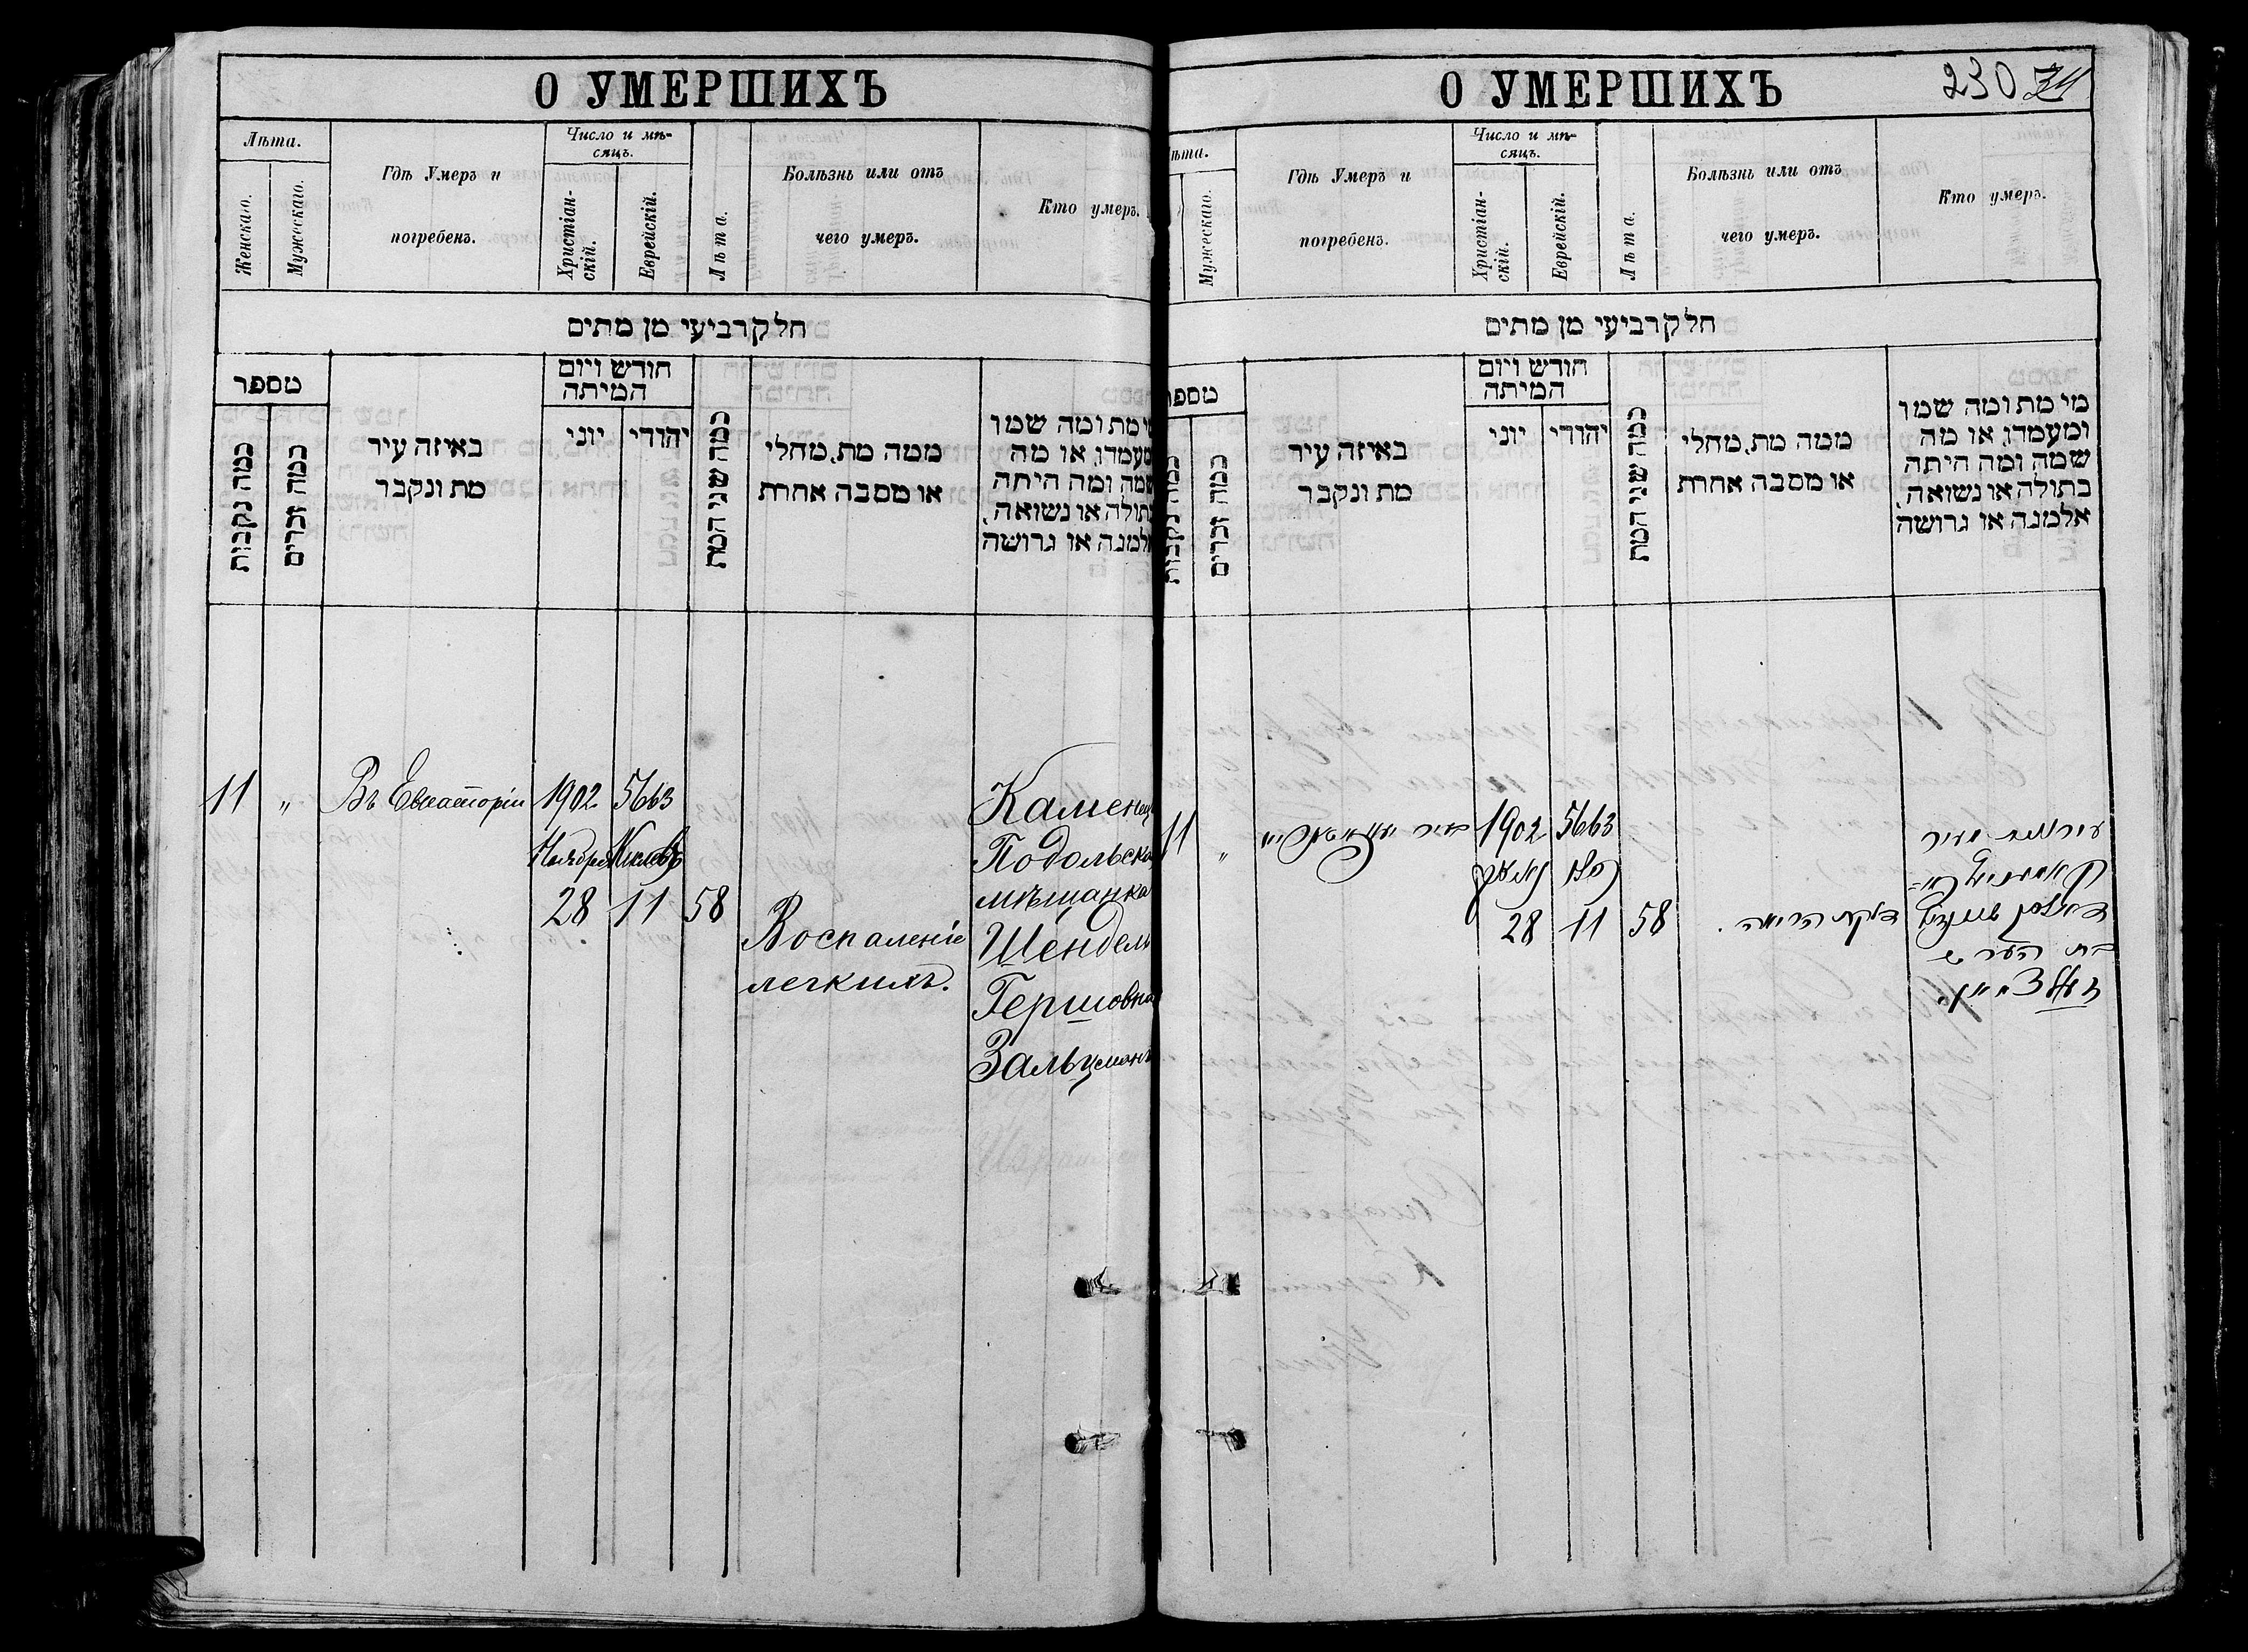 О УМЕРШИХЪ
Лѣта.
Женскаго.
Мужескаго.
Гдѣ Умеръ и
погребенъ.
Число и мѣ-
сяцъ.
Христіан-
скій.
Еврейскій.
Лѣта.
Болѣзнь или отъ
чего умеръ.
Кто умеръ.
חלק רביעי מן מתים
מספר
כמה נקבות
כמה זכרים
באיזה עיר
מת ונקבר
חודש ויום
המיתה
יוני
יהודי
כמה שני המת
ממה מת, מחלי
או מסבה אחרת
מת ומה שמו
או מה
שמה ומה היתה
בתולה או נשואה,
אלמנה או גרושה
11
"
Въ Евпаторіи
1902
Ноября
28
5663
Кислевъ
11
58
Воспаленіе
легкихъ.
Каменец
Подольска
мѣщанка
Шендель
Гершовна
Зальцманъ
О УМЕРШИХЪ
230
ѣта.
Мужескаго.
Гдѣ Умеръ и
погребенъ.
Число и мѣ-
сяцъ.
Христіан-
скій.
Еврейскій.
Лѣта.
Болѣзнь или отъ
чего умеръ.
Кто умеръ.
חלק רביעי מן מתים
מספר
כמה נקבות
כמה זכרים
באיזה עיר
מת ונקבר
חודש ויום
המיתה
יוני
יהודי
כמה שני המת
ממה מת, מחלי
או מסבה אחרת
מי מת ומה שמו
ומעמדו, או מה
שמה ומה היתה
בתולה או נשואה,
אלמנה או גרושה
11
"
בעיר
1902
28
5663
כסלו
11
58
דלקת הריאה
בת הערש
זאלצמאן